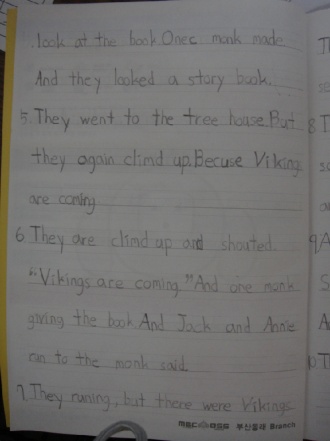 look at the book Onec monk made
And they looked a story book.
5. They went to the tree house. But
they again climd up. Becuse Vikings
are coming
6. They are climd up and shouted.
"Vikings are coming" And one monk
giving the book. And Jack and Annie
run to the monk said.
7. They runing, but there were Vikings
부산동래 Branch